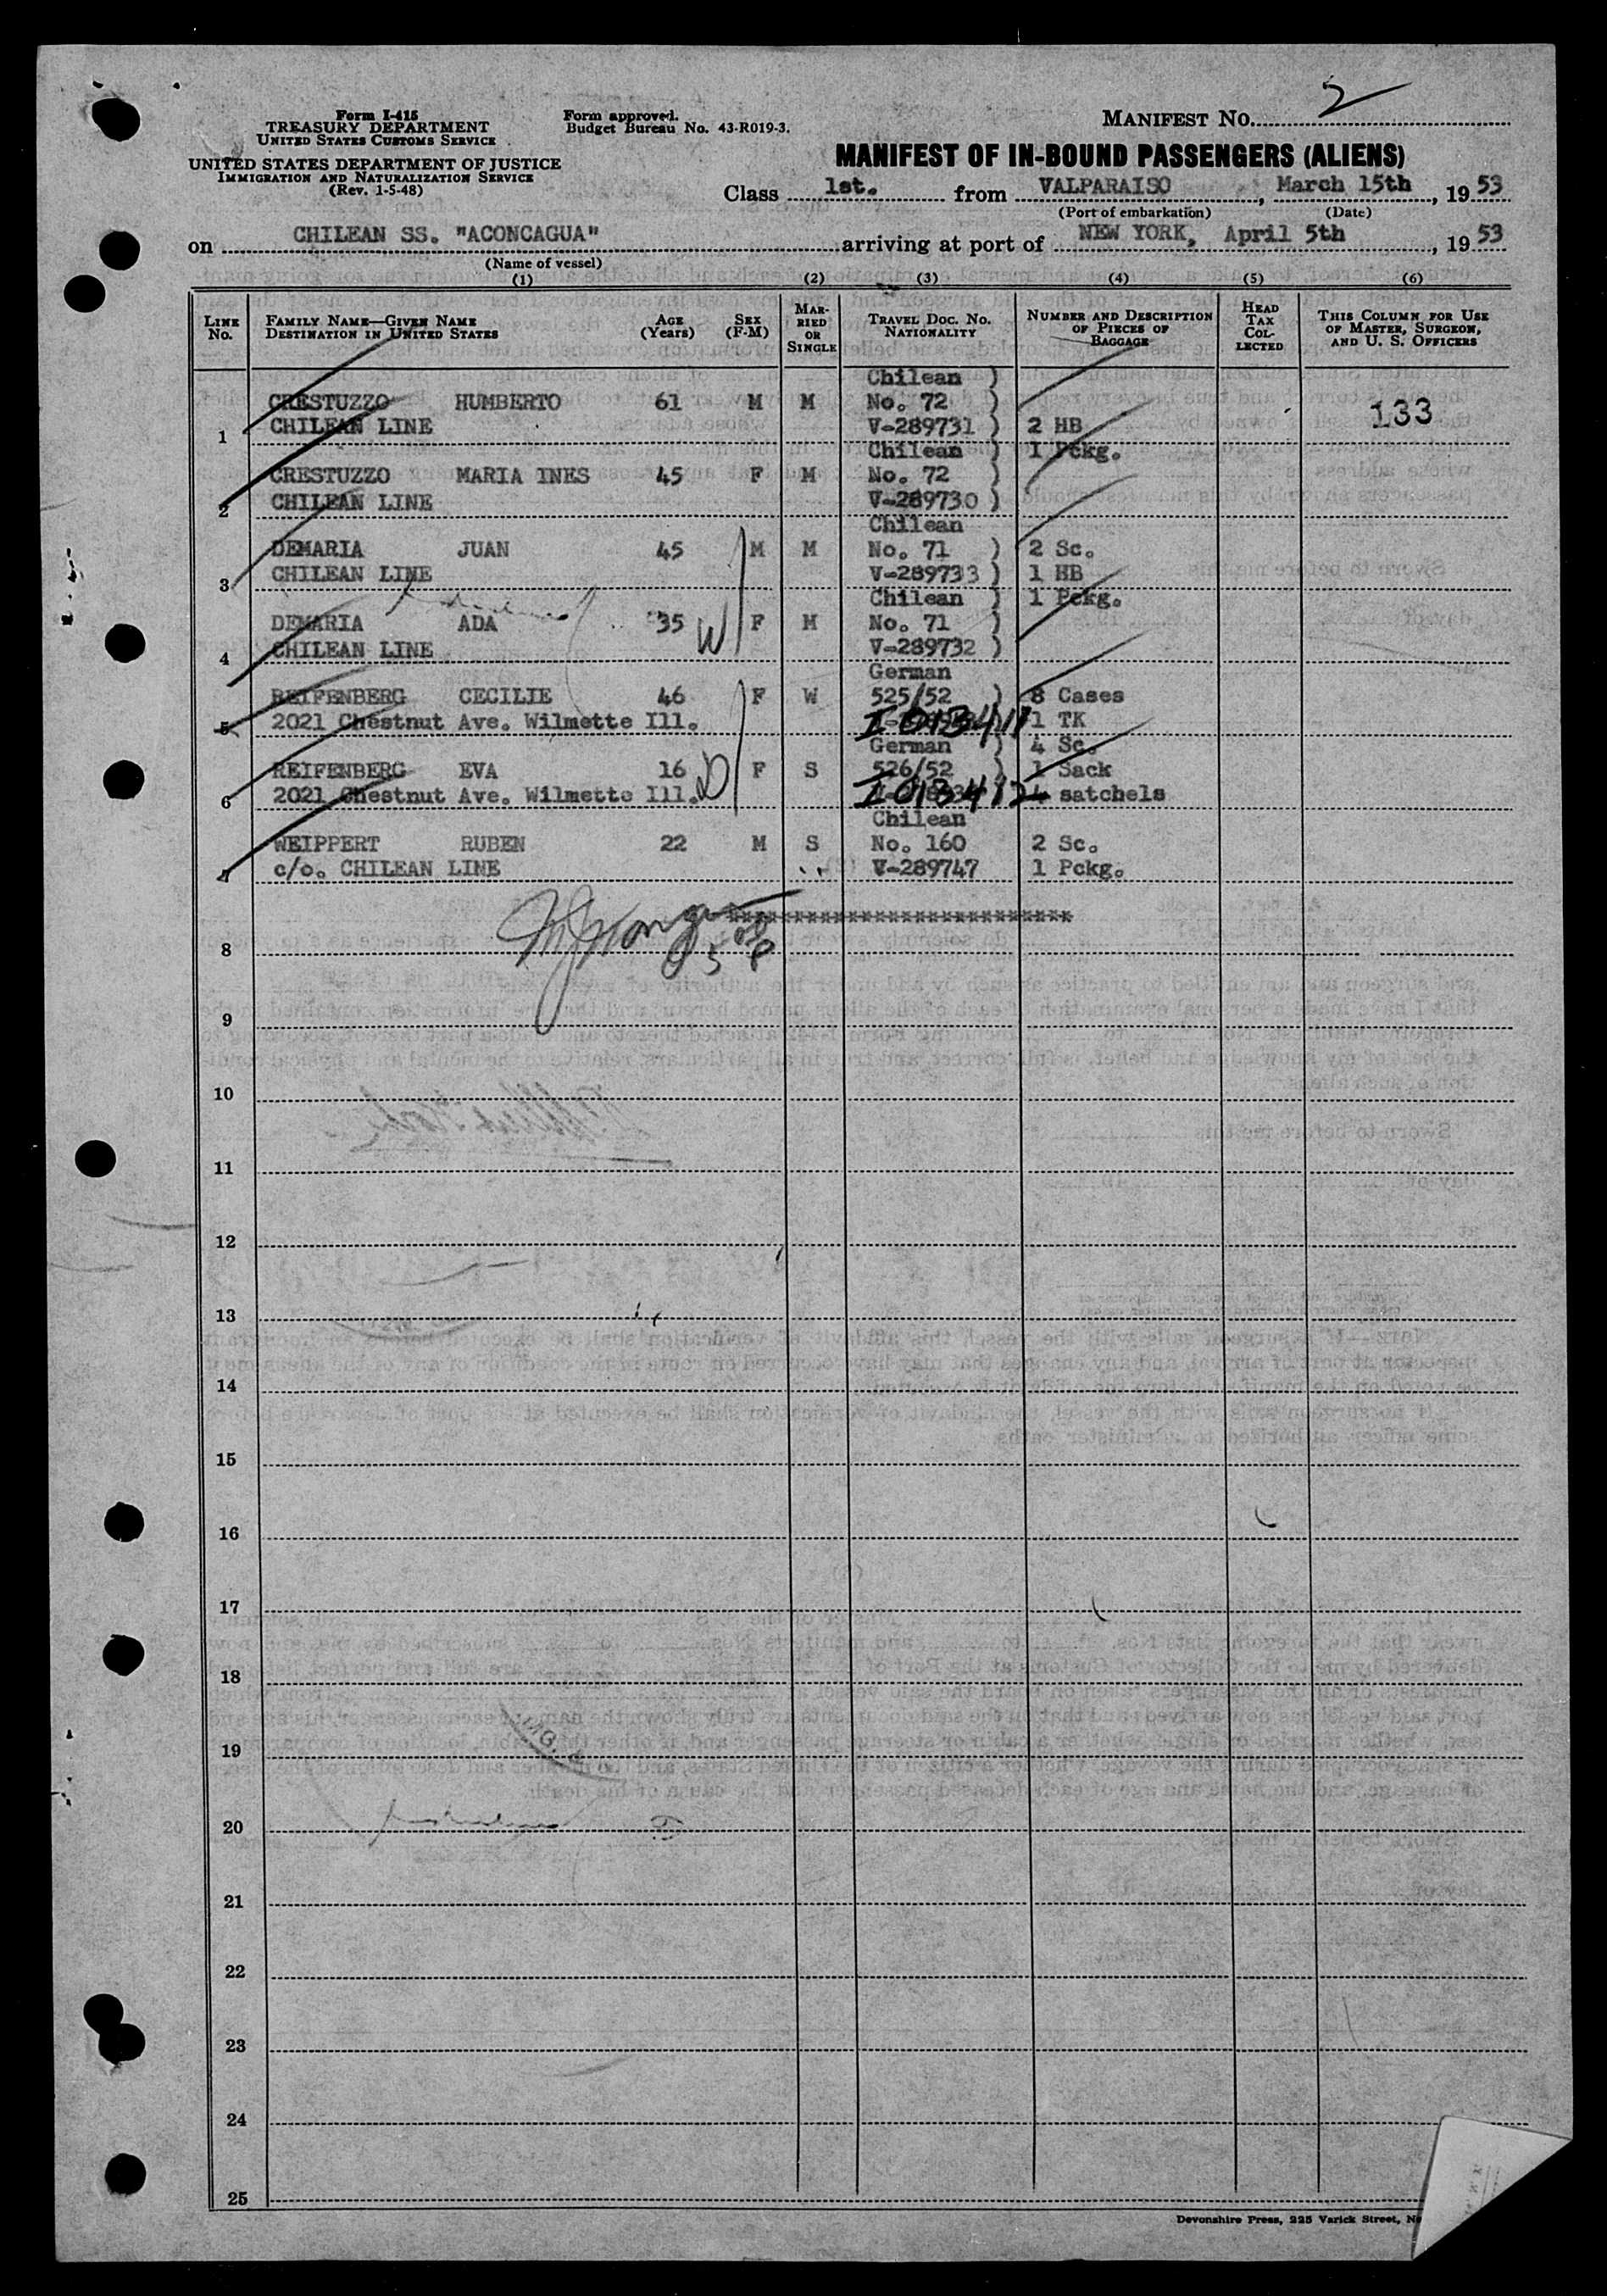 Form I-415
TREASURY DEPARTMENT
UNITED STATES CUSTOMS SERVICE
UNITED STATES DEPARTMENT OF JUSTICE
IMMIGRATION AND NATURALIZATION SERVICE
(Rev. 1-5-48)
Form approved.
Budget Bureau No. 43-R019-3.
MANIFEST NO. 2
MANIFEST OF IN-BOUND PASSENGERS (ALIENS)
Class 1st. from VALPARAISO, March 15th, 19 53
(Port of embarkation) (Date)
on CHILEAN SS. "ACONCAGUA" arriving at port of NEW YORK, April 5th, 19 53
(Name of vessel)
(1) (2) (3) (4) (5) (6)
LINE No. FAMILY NAME—GIVEN NAME DESTINATION IN UNITED STATES AGE (Years) SEX (F-M) MARRIED OR SINGLE TRAVEL DOC. NO. NATIONALITY NUMBER AND DESCRIPTION OF PIECES OF BAGGAGE HEAD TAX COLLECTED THIS COLUMN FOR USE OF MASTER, SURGEON, AND U. S. OFFICERS
Chilean )
CRESTUZZO HUMBERTO 61 M M No. 72 ) 133
1 CHILEAN LINE V-289731 ) 2 HB
Chilean ) 1 Pckg.
CRESTUZZO MARIA INES 45 F M No. 72 )
2 CHILEAN LINE V-289730 )
Chilean
DEMARIA JUAN 45 M M No. 71 ) 2 Sc.
3 CHILEAN LINE V-289733 ) 1 HB
Chilean ) 1 Pckg.
DEMARIA ADA 35 W F M No. 71 )
4 CHILEAN LINE V-289732 )
German
REIFENBERG CECILIE 46 F W 525/52 ) 8 Cases
5 2021 Chestnut Ave. Wilmette Ill. I 013411 1 TK
German ) 4 Sc.
REIFENBERG EVA 16 F S 526/52 ) 1 Sack
6 2021 Chestnut Ave. Wilmette Ill. I 013412 4 satchels
Chilean
WEIPPERT RUBEN 22 M S No. 160 2 Sc.
7 c/o. CHILEAN LINE V-289747 1 Pckg.
8
9
10
11
12
13
14
15
16
17
18
19
20
21
22
23
24
25
Devonshire Press, 225 Varick Street,